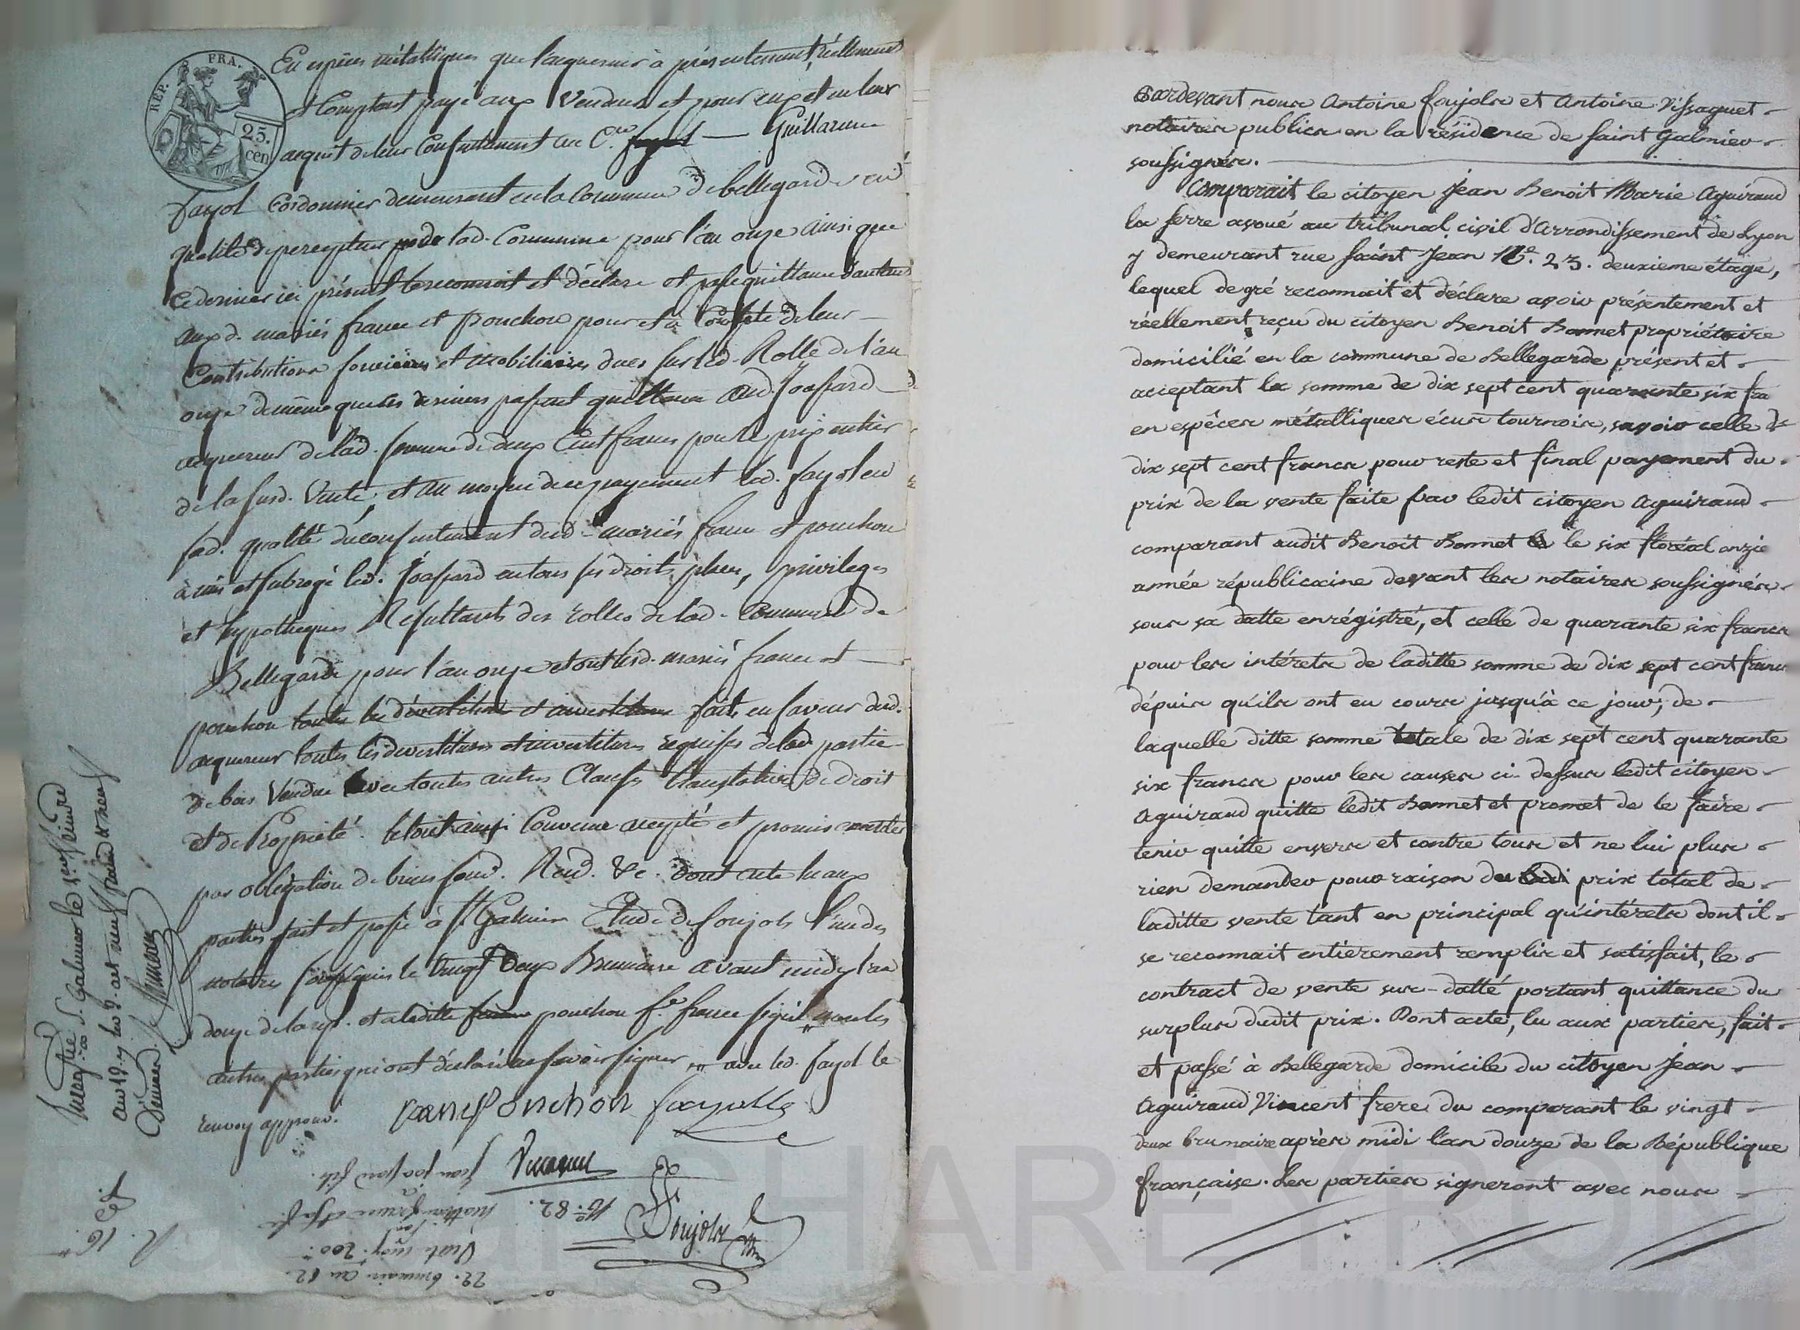 REP. FRA.
25.
cen
En espèces métalliques que l'acquereur a présentement, réellement
et Comptant payé aux Vendeurs et pour eux et en leur
acquit de leur Consentement au C.en fayol — Guillaume
fayol Cordonnier demeurant en la Commune de bellegarde en
qualité de percepteur de lad. Commune pour l'an onze ainsi que
ce dernier ici présent le reconnoit et déclare et passe quittance
aux d. mariés france et ponchon pour et à Compte de leur —
Contributions foncières et mobiliaires dues sur led. Rolle de l'an
onze de même que ces derniers passent quittance aud. Joassard —
acquereur de lad. somme de deux Cent francs pour le prix entier
de la susd. Vente, et au moyen de ce payement led. fayol en
sad. qualité du consentement desd. mariés france et ponchon
à mis et subrogé led. Joassard en tous ses droits, places, privileges
et hypotheques Résultants des rolles de lad. Commune de
Bellegarde pour l'an onze et ont lesd. mariés france et —
ponchon toutes les dévestitures et investitures faits en faveur dud.
acquereur toutes les devestitures et investitures requises de lad. partie
de bois Vendue avec toutes autres Clauses translatives de droit
et de Propriété. le tout ainsi Convenu accepté et promis
par obligation de biens Rend. &c. Dont acte lu aux
parties fait et passé à St Galmier Etude de foujols l'un des
notaires soussignés le vingt Deux Brumaire avant midy l'an
douze de la rep. et a laditte ponchon fe. france signé non les
autres parties qui ont déclaré ne savoir signer avec led. fayol le
renvoy approuvé. ponchon fayolle
Foujols
No. 82.
22. brumaire an 12
Enregistré à St. Galmier le
an 12
R. 16
Pardevant nous Antoine foujols et Antoine Vissaguet
notaires publics en la résidence de Saint Galmier
soussignés.
Comparait le citoyen Jean Benoit Marie Aguiraud
la serre avoué au tribunal civil d'Arrondissement de Lyon
y demeurant rue Saint Jean No. 23. deuxieme étage,
lequel de gré reconnait et déclare avoir présentement et
réellement reçu du citoyen Benoit Bonnet propriétaire
domicilié en la commune de Bellegarde présent et
acceptant la somme de dix sept cent quarante six fra
en espêces métalliques écus tournois, savoir celle de
dix sept cent francs pour reste et final payement du
prix de la vente faite par ledit citoyen Aguiraud
comparant audit Benoit Bonnet le six floréal onzie
année républicaine devant les notaires soussignés
sous sa datte enrégistré, et celle de quarante six francs
pour les intérets de laditte somme de dix sept cent francs
dépuis qu'ils ont eu cours jusqu'à ce jour, de
laquelle ditte somme totale de dix sept cent quarante
six francs pour les causes ci-dessus ledit citoyen
Aguiraud quitte ledit Bonnet et promet de le faire
tenir quitte envers et contre tous et ne lui plus
rien demander pour raison du prix total de
laditte vente tant en principal qu'intérets dont il
se reconnait entièrement remplir et satisfait, le
contract de vente sus-datté portant quittance du
surplus dudit prix. Dont acte, lu aux parties, fait
et passé à Bellegarde domicile du citoyen Jean
Aguiraud Vincent frere du comparant le vingt
deux brumaire après midi l'an douze de la République
française. Les parties signeront avec nous
CHAREYRON